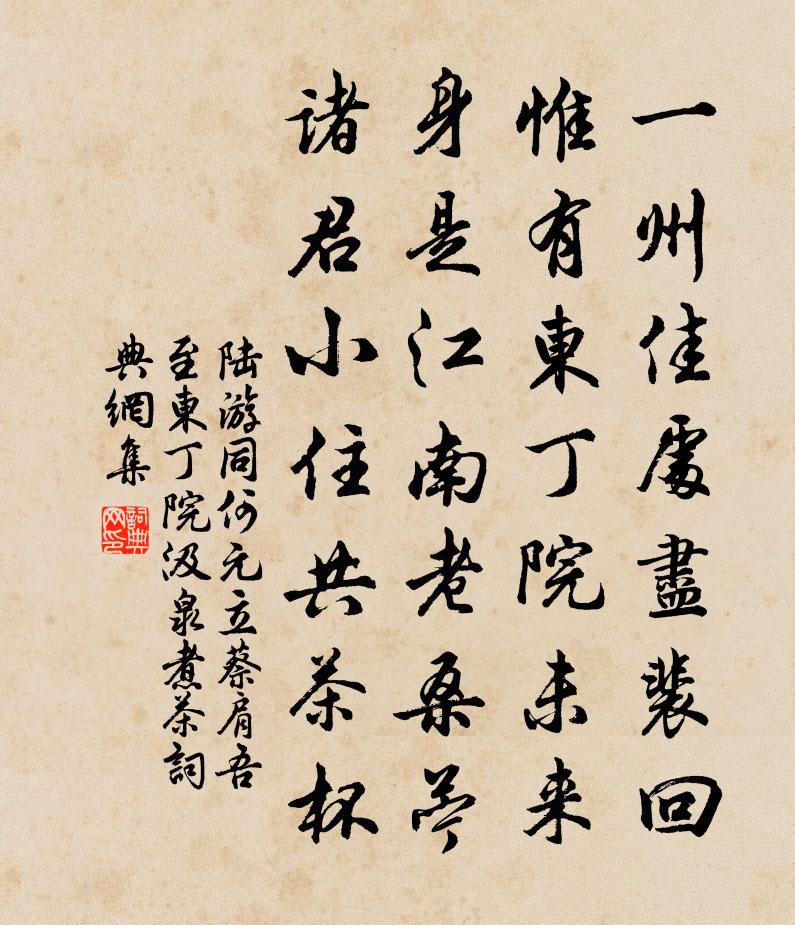 一州佳處盡裴回
惟有東丁院未来
身是江南老桑苧
諸君小住共茶杯
陆游同何元立蔡肩吾
至東丁院汲泉煮茶詞
典網集
詞典
网印